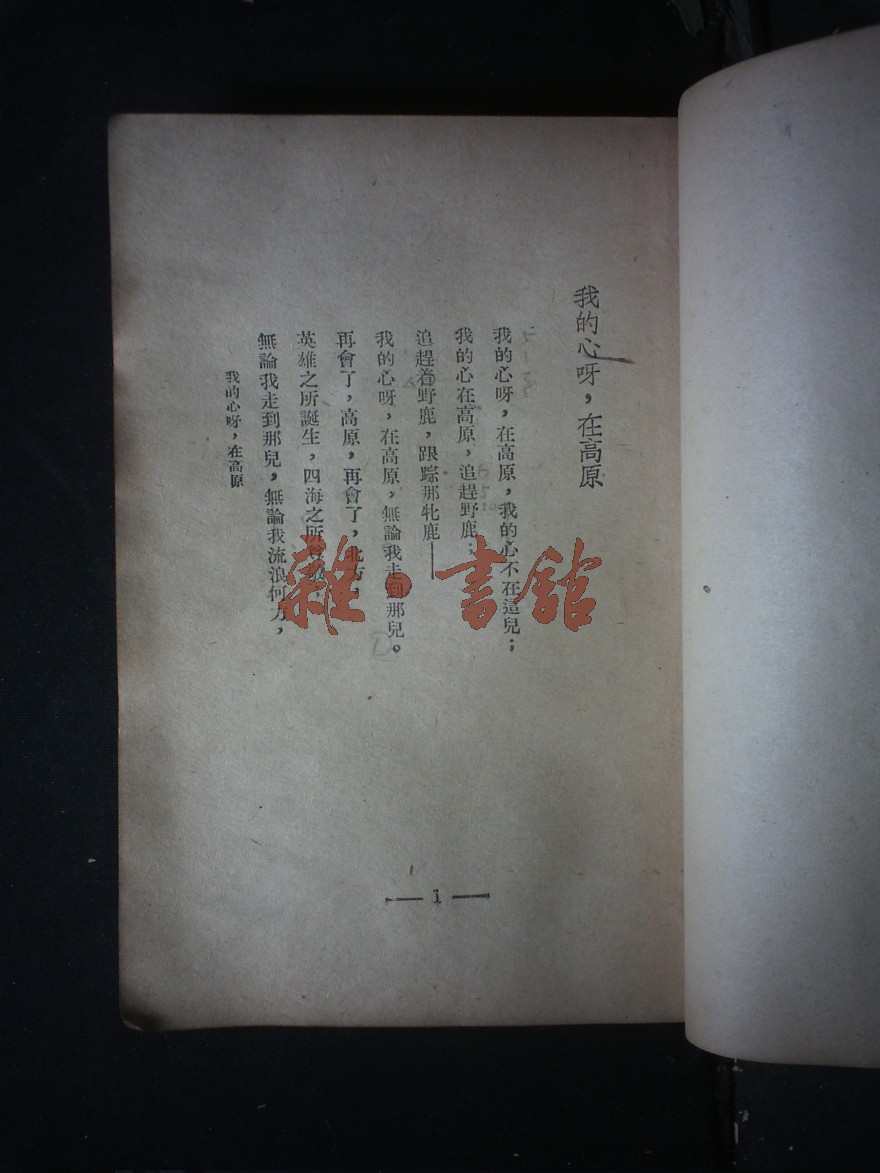 我的心呀，在高原
我的心呀，在高原，我的心不在這兒；
我的心在高原，追趕野鹿；
追趕着野鹿，跟踪那牝鹿——
我的心呀，在高原，無論我走到那兒。
再會了，高原，再會了，北方，
英雄之所誕生，四海之所
無論我走到那兒，無論我流浪何方，
我的心呀，在高原
— 1 —
雜·書館